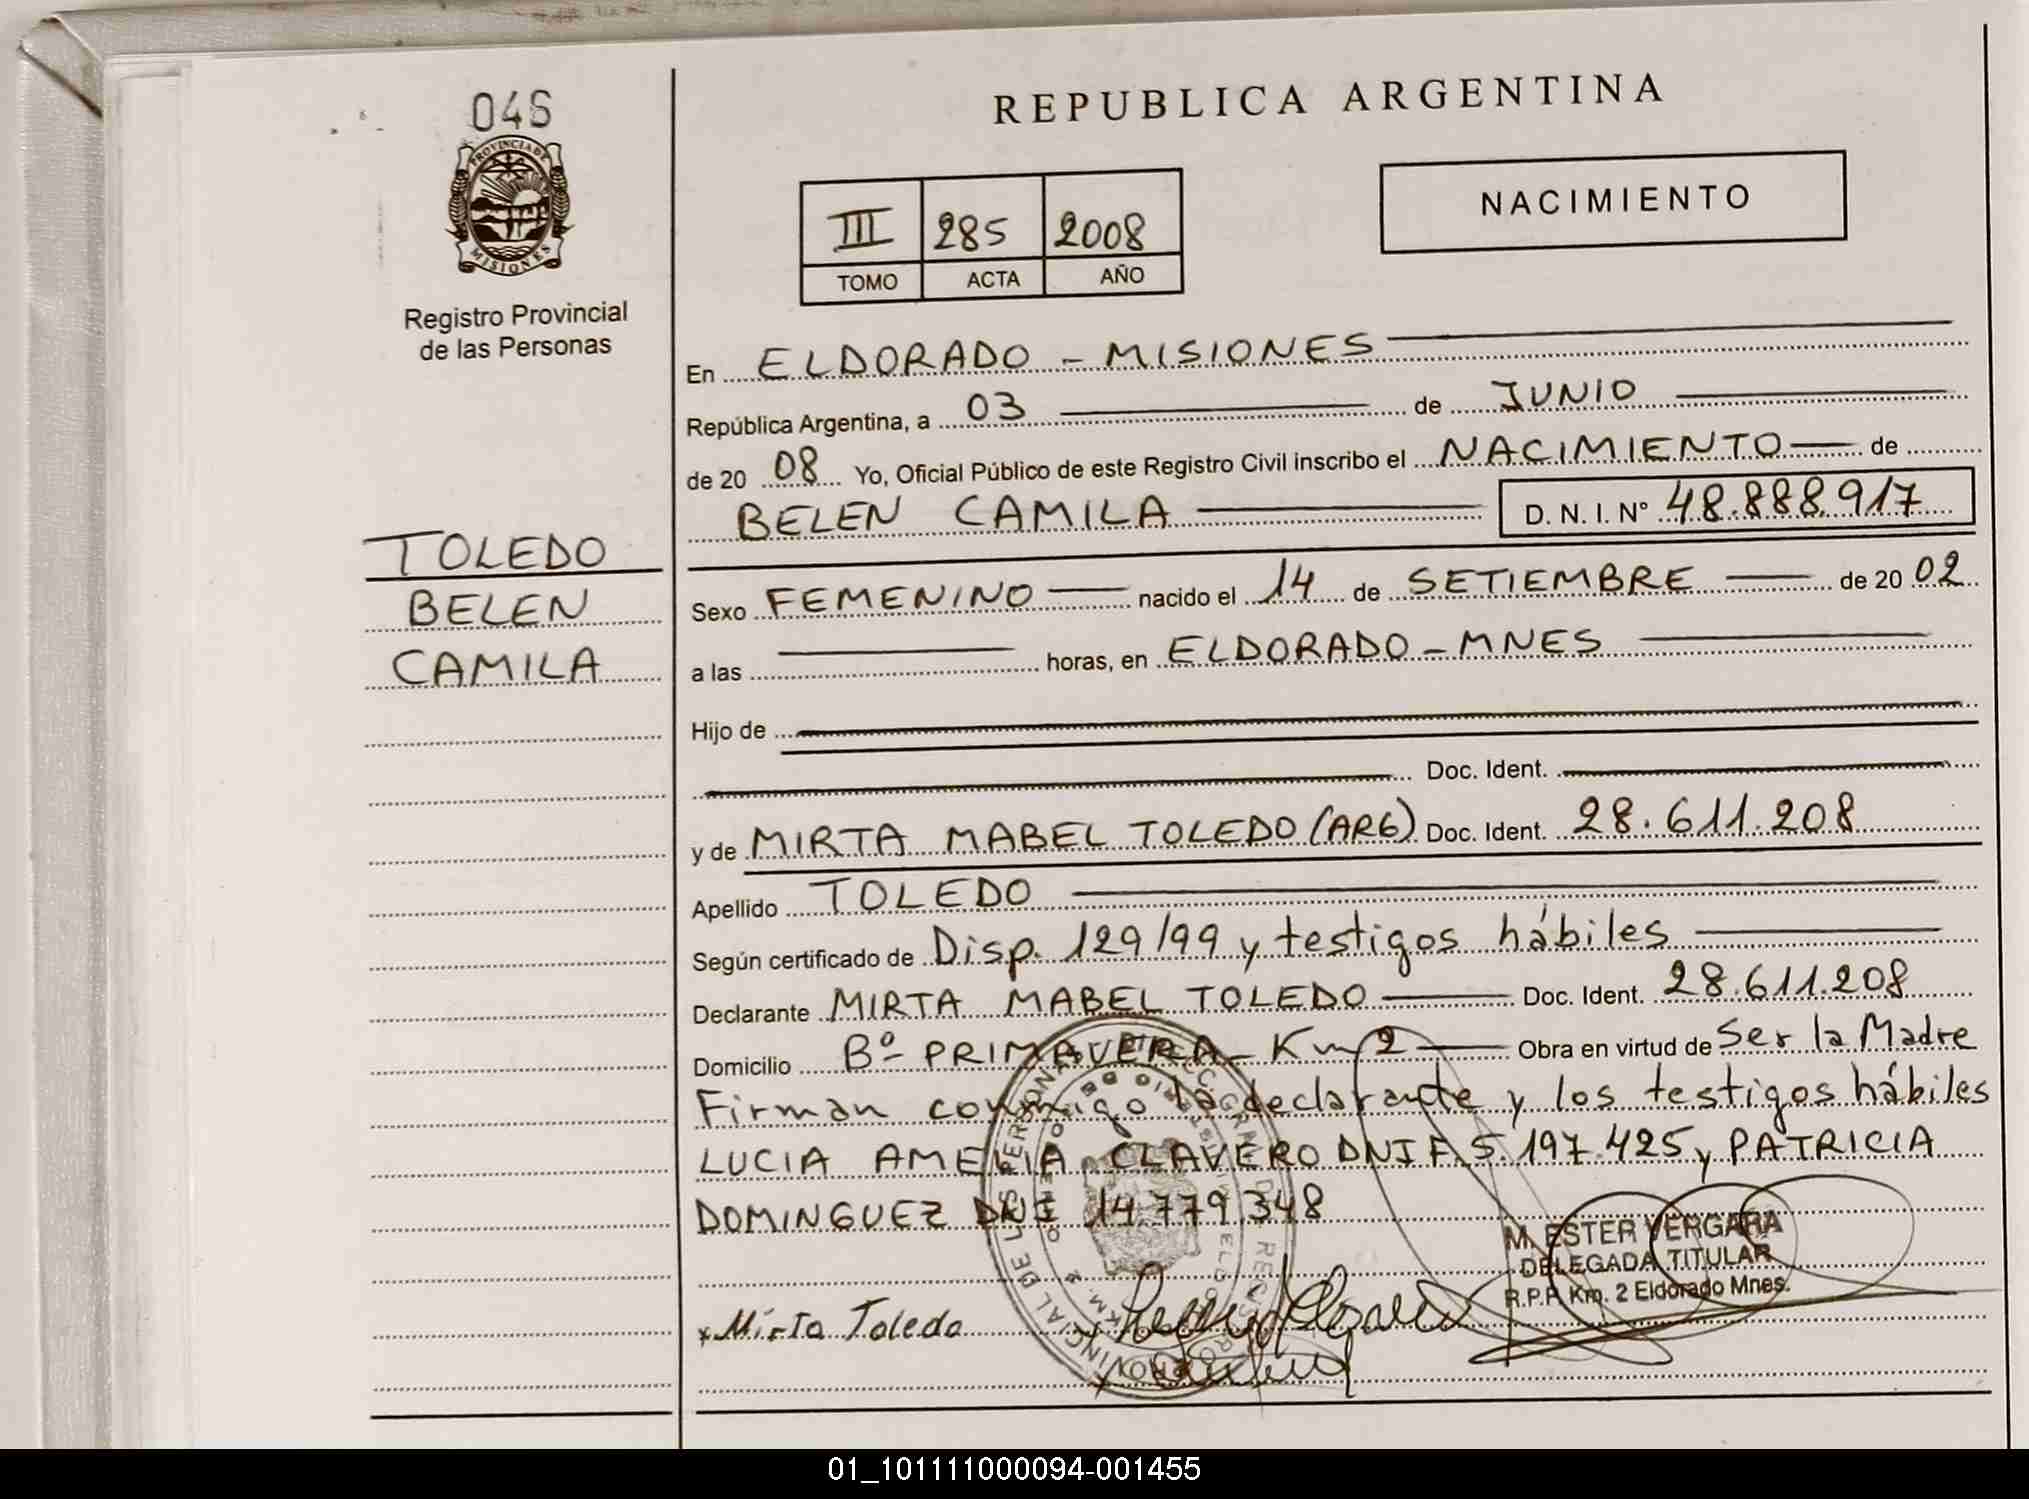 046
PROVINCIA DE
MISIONES
Registro Provincial
de las Personas
TOLEDO
BELEN
CAMILA
REPUBLICA ARGENTINA
III 285 2008
TOMO ACTA AÑO
NACIMIENTO
En ELDORADO - MISIONES
República Argentina, a 03 de JUNIO
de 20 08 Yo, Oficial Público de este Registro Civil inscribo el NACIMIENTO de
BELEN CAMILA D. N. I. N° 48.888.917
Sexo FEMENINO nacido el 14 de SETIEMBRE de 20 02
a las horas, en ELDORADO - MNES
Hijo de
Doc. Ident.
y de MIRTA MABEL TOLEDO (ARG) Doc. Ident. 28.611.208
Apellido TOLEDO
Según certificado de Disp. 129/99 y testigos hábiles
Declarante MIRTA MABEL TOLEDO Doc. Ident. 28.611.208
Domicilio Bº PRIMAVERA - Km 2 Obra en virtud de Ser la Madre
Firman conmigo la declarante y los testigos hábiles
LUCIA AMELIA CLAVERO DNI F. 5.197.425 y PATRICIA
DOMINGUEZ DNI 14.779.348
M. ESTER VERGARA
DELEGADA TITULAR
R.P.P. Km. 2 Eldorado Mnes.
x Mirta Toledo
01_101111000094-001455